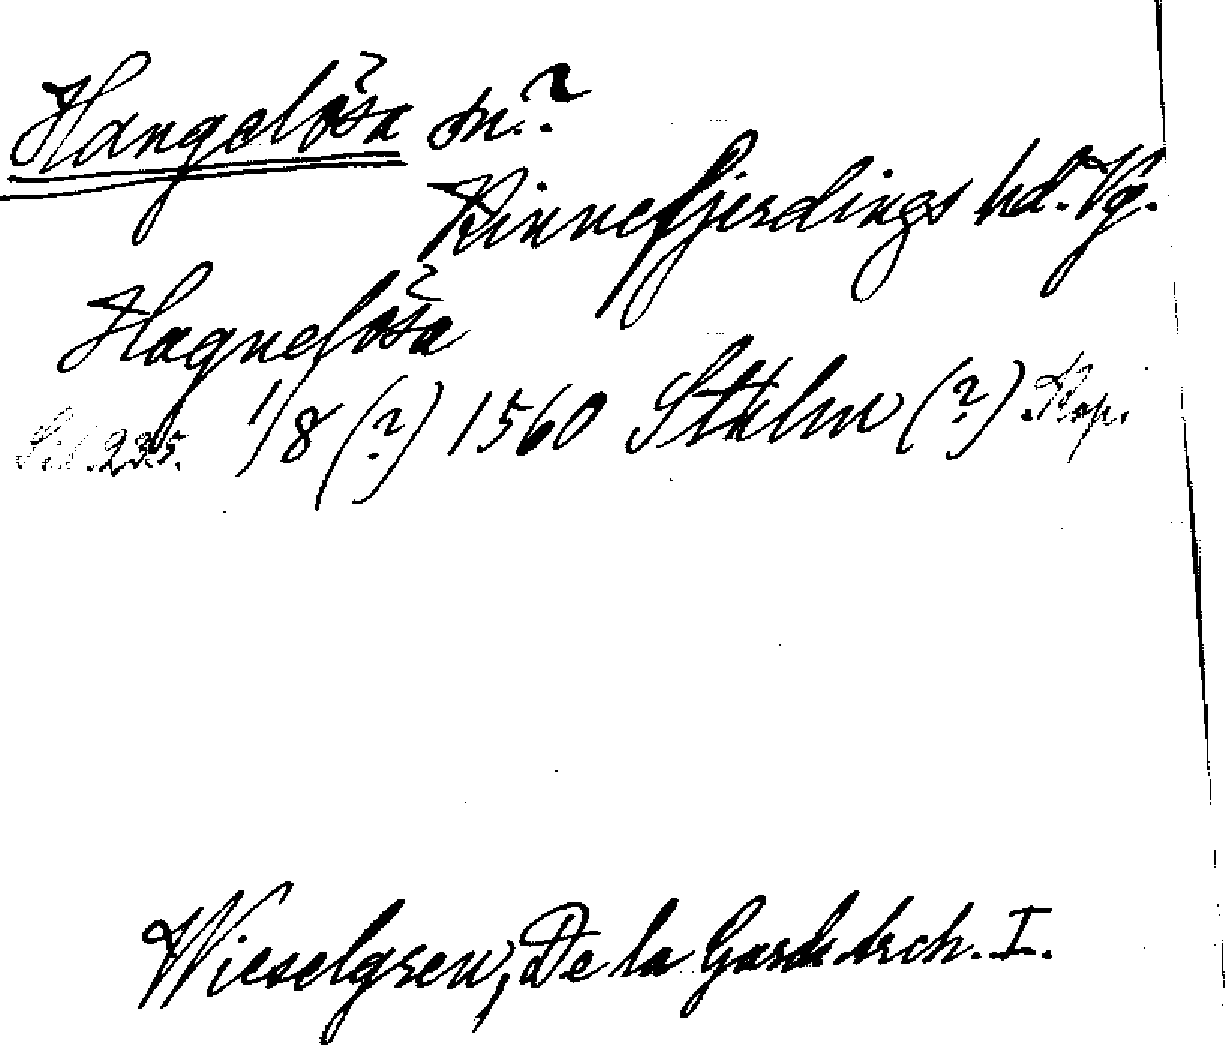 Hangelösa sn.?
Kinnefjerdings hd. Vg.
Hagnelösa
Sid. 235. 1/8 (?) 1560 Sthlm (?) Kop.
Wieselgren, De la Gard. Arch. I.